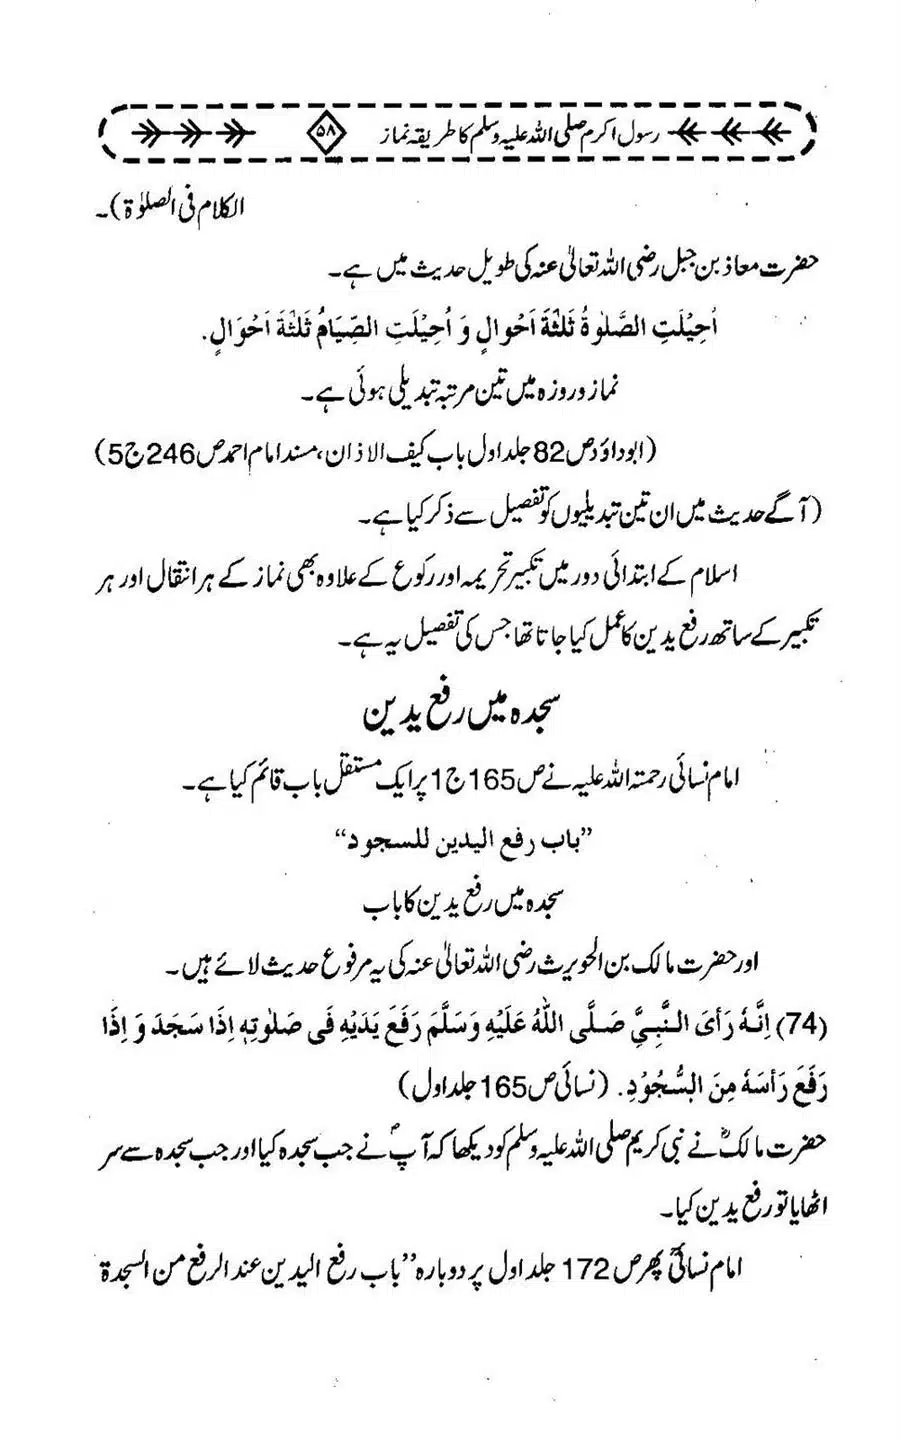 رسول اکرم صلی اللہ علیہ وسلم کا طریقہ نماز ۵۸
الکلام فی الصلوٰۃ)۔
حضرت معاذ بن جبل رضی اللہ تعالیٰ عنہ کی طویل حدیث میں ہے۔
اُحِیْلَتِ الصَّلٰوۃُ ثَلٰثَۃَ اَحْوَالٍ وَ اُحِیْلَتِ الصِّیَامُ ثَلٰثَۃَ اَحْوَالٍ.
نماز و روزہ میں تین مرتبہ تبدیلی ہوئی ہے۔
(ابوداؤد ص 82 جلد اول باب کیف الاذان، مسند امام احمد ص 246 ج 5)
(آگے حدیث میں ان تین تبدیلیوں کو تفصیل سے ذکر کیا ہے۔
اسلام کے ابتدائی دور میں تکبیر تحریمہ اور رکوع کے علاوہ بھی نماز کے ہر انتقال اور ہر
تکبیر کے ساتھ رفع یدین کا عمل کیا جاتا تھا جس کی تفصیل یہ ہے۔
سجدہ میں رفع یدین
امام نسائی رحمتہ اللہ علیہ نے ص 165 ج 1 پر ایک مستقل باب قائم کیا ہے۔
”باب رفع الیدین للسجود“
سجدہ میں رفع یدین کا باب
اور حضرت مالک بن الحویرث رضی اللہ تعالیٰ عنہ کی یہ مرفوع حدیث لائے ہیں۔
(74) اِنَّہٗ رَأیَ النَّبِیَّ صَلَّی اللّٰہُ عَلَیْہِ وَسَلَّمَ رَفَعَ یَدَیْہِ فَی صَلٰوتِہٖ اِذَا سَجَدَ وَ اِذَا
رَفَعَ رَأسَہٗ مِنَ السُّجُوْدِ. (نسائی ص 165 جلد اول)
حضرت مالکؓ نے نبی کریم صلی اللہ علیہ وسلم کو دیکھا کہ آپؐ نے جب سجدہ کیا اور جب سجدہ سے سر
اٹھایا تو رفع یدین کیا۔
امام نسائیؒ پھر ص 172 جلد اول پر دوبارہ ”باب رفع الیدین عند الرفع من السجدۃ